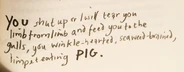 YOU shut up or I will tear you
limb from limb and feed you to the
gulls, you wrinkle-hearted, seaweed-brained,
limpet eating PIG.